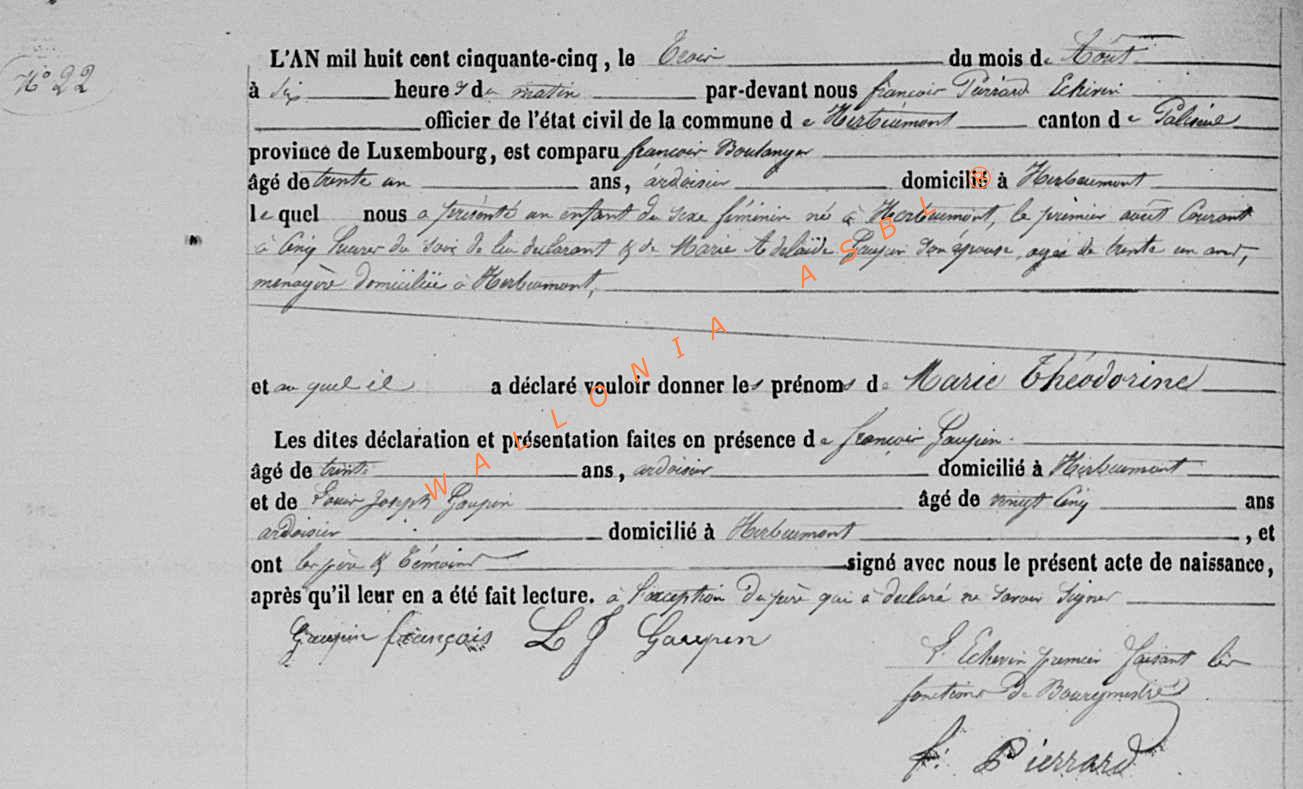 N° 22
L'AN mil huit cent cinquante-cinq, le Trois du mois de Août
à dix heures du matin par-devant nous françois Pierrard Echevin
officier de l'état civil de la commune de Herbeumont canton de Paliseul
province de Luxembourg, est comparu françois Boulanger
âgé de trente un ans, ardoisier domicilié à Herbeumont
lequel nous a présenté un enfant du sexe féminin né à Herbeumont, le premier août Courant
à Cinq heures du soir de lui declarant & de Marie Adelaïde Gaupin son épouse, agée de trente un ans,
ménagère domiciliée à Herbeumont,
et auquel il a déclaré vouloir donner les prénoms de Marie Théodorine
Les dites déclaration et présentation faites en présence de françois Gaupin
âgé de trente ans, ardoisier domicilié à Herbeumont
et de Louis Joseph Gaupin âgé de vingt Cinq ans
ardoisier domicilié à Herbeumont, et
ont les père & Témoins signé avec nous le présent acte de naissance,
après qu'il leur en a été fait lecture. à l'exception du père qui a declaré ne savoir signer
Gaupin françois L J Gaupin
L'Echevin premier faisant les
fonctions de Bourgmestre
f. Pierrard
WALLONIA ASBL ®